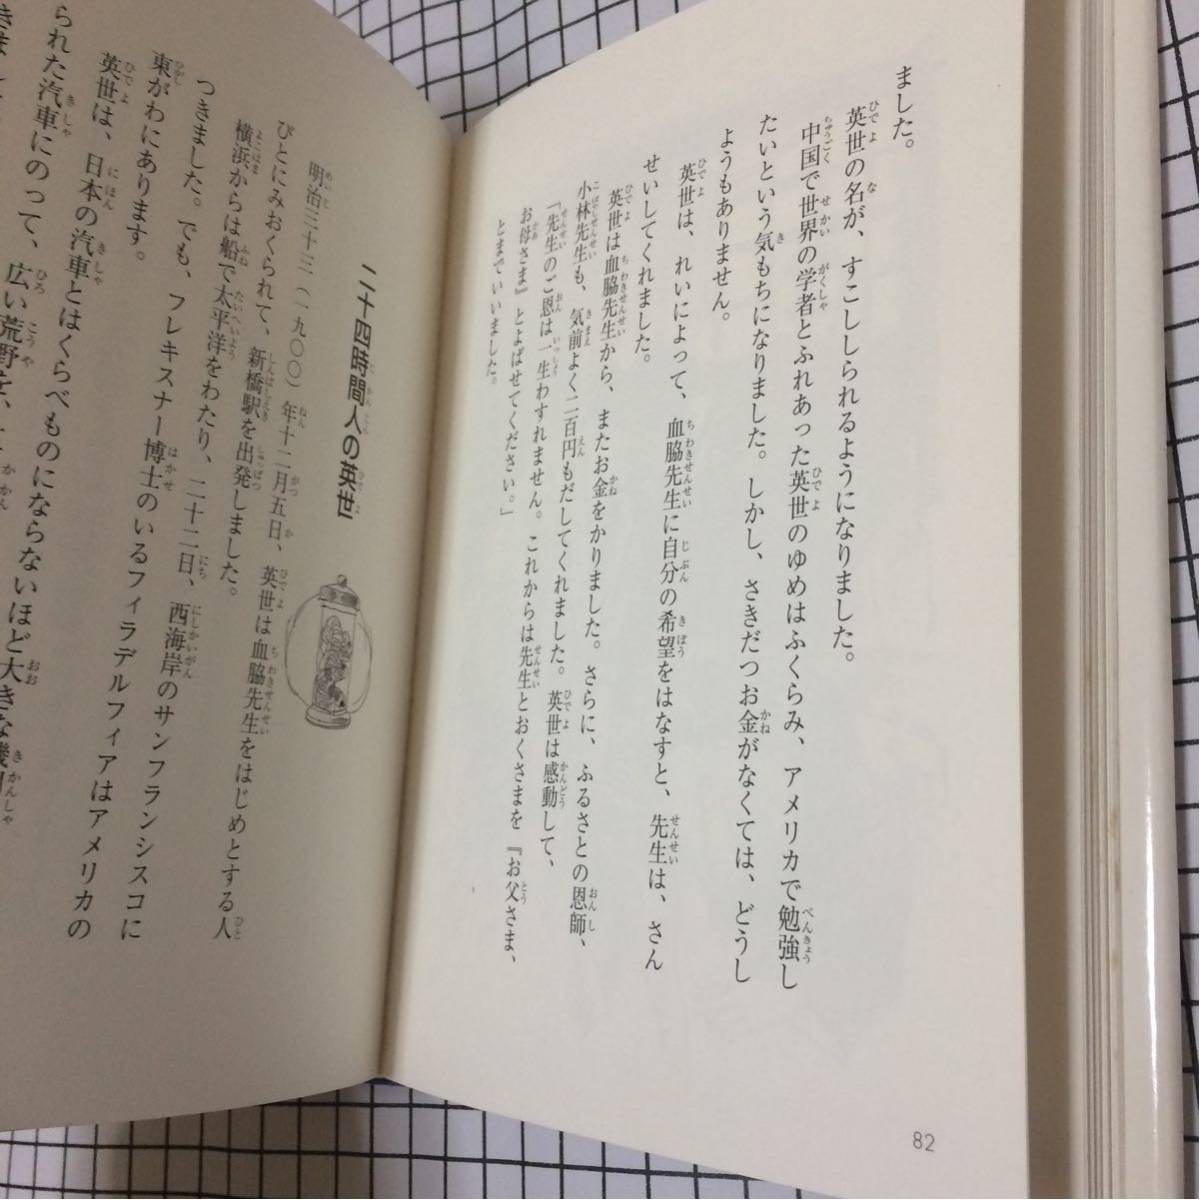 ました。
英世の名が、すこししられるようになりました。
中国で世界の学者とふれあった英世のゆめはふくらみ、アメリカで勉強し
たいという気もちになりました。しかし、さきだつお金がなくては、どうし
ようもありません。
英世は、れいによって、血脇先生に自分の希望をはなすと、先生は、さん
せいしてくれました。
英世は血脇先生から、またお金をかりました。さらに、ふるさとの恩師、
小林先生も、気前よく二百円もだしてくれました。英世は感動して、
「先生のご恩は一生わすれません。これからは先生とおくさまを『お父さま、
お母さま』とよばせてください。」
とまでいいました。
82
二十四時間人の英世
明治三十三(一九〇〇)年十二月五日、英世は血脇先生をはじめとする人
びとにみおくられて、新橋駅を出発しました。
横浜からは船で太平洋をわたり、二十二日、西海岸のサンフランシスコに
つきました。でも、フレキスナー博士のいるフィラデルフィアはアメリカの
東がわにあります。
英世は、日本の汽車とはくらべものにならないほど大きな機
られた汽車にのって、広い荒野を、